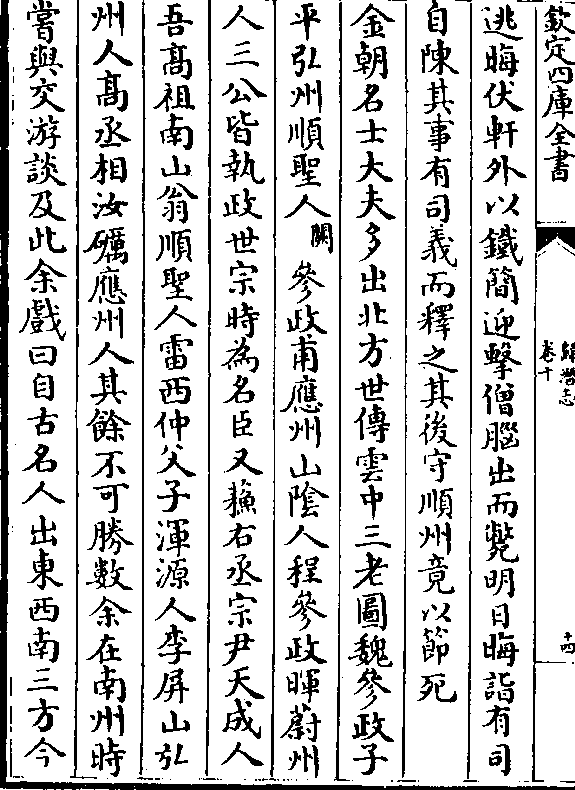 欽定四庫全書
歸潛志
卷十
十四
逃晦伏軒外以鐵簡迎擊僧腦出而斃明日晦詣有司
自陳其事有司義而釋之其後守順州竟以節死
金朝名士大夫多出北方世傳雲中三老圖魏參政子
平弘州順聖人闕參政甫應州山陰人程參政暉蔚州
人三公皆執政世宗時為名臣又蘓右丞宗尹天成人
吾髙祖南山翁順聖人雷西仲父子渾源人李屏山弘
州人髙丞相汝礪應州人其餘不可勝數余在南州時
嘗與交游談及此余戲曰自古名人出東西南三方今